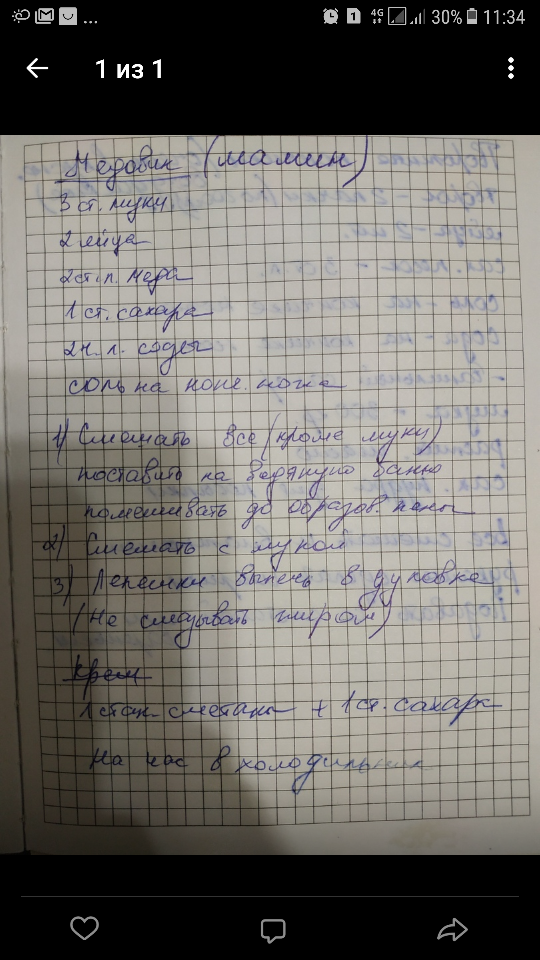 4G 30% 11:34
1 из 1
Медовик (мамин)
3 ст. муки
2 яйца
2ст.л. меда
1 ст. сахара
2ч. л. соды
соль на конч. ножа
1) Смешать все (кроме муки)
поставить на водяную баню
помешивать до образов. пены
2) Смешать с мукой
3) Лепешки выпечь в духовке
(Не смазывать жиром)
Крем
1 стак. сметаны + 1 ст. сахара
На час в холодильник